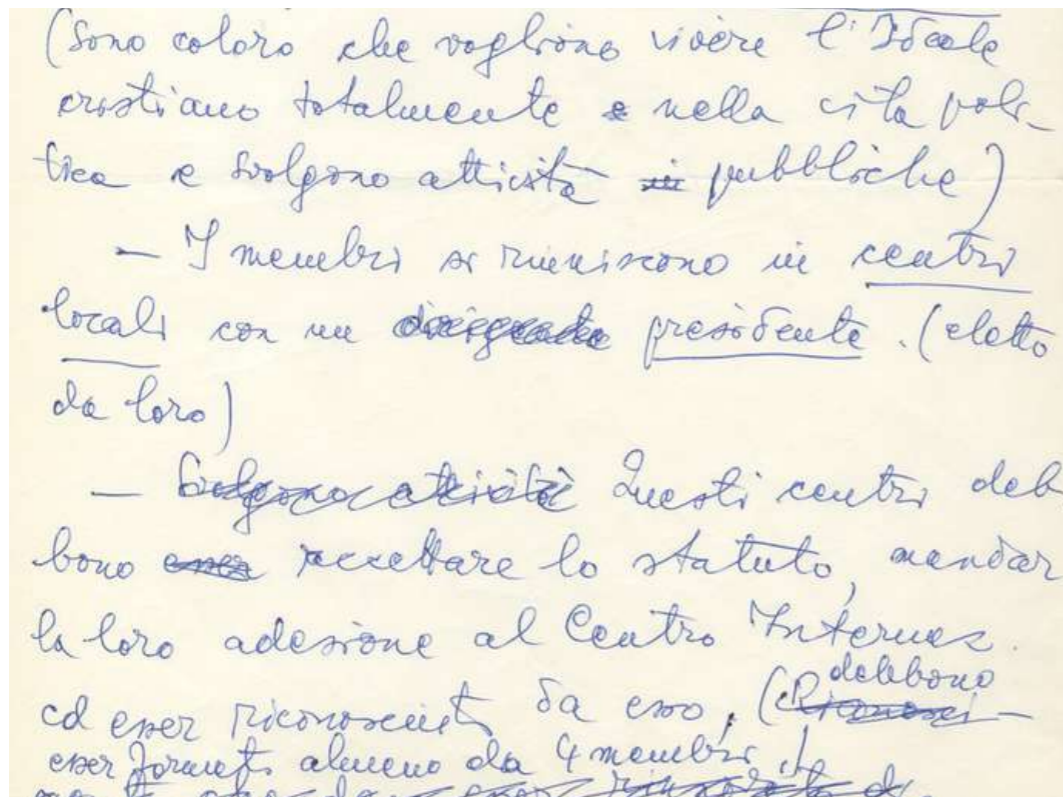 (Sono coloro che vogliono vivere l'Ideale
cristiano totalmente e nella vita poli-
tica e svolgono attività in pubbliche)
– I membri si riuniscono in centri
locali con un presidente. (eletto
da loro)
– Svolgono attività Questi centri deb
bono esser accettare lo statuto, mandar
la loro adesione al Centro Internaz.
ed esser riconosciuti da esso, (debbono
esser formati almeno da 4 membri